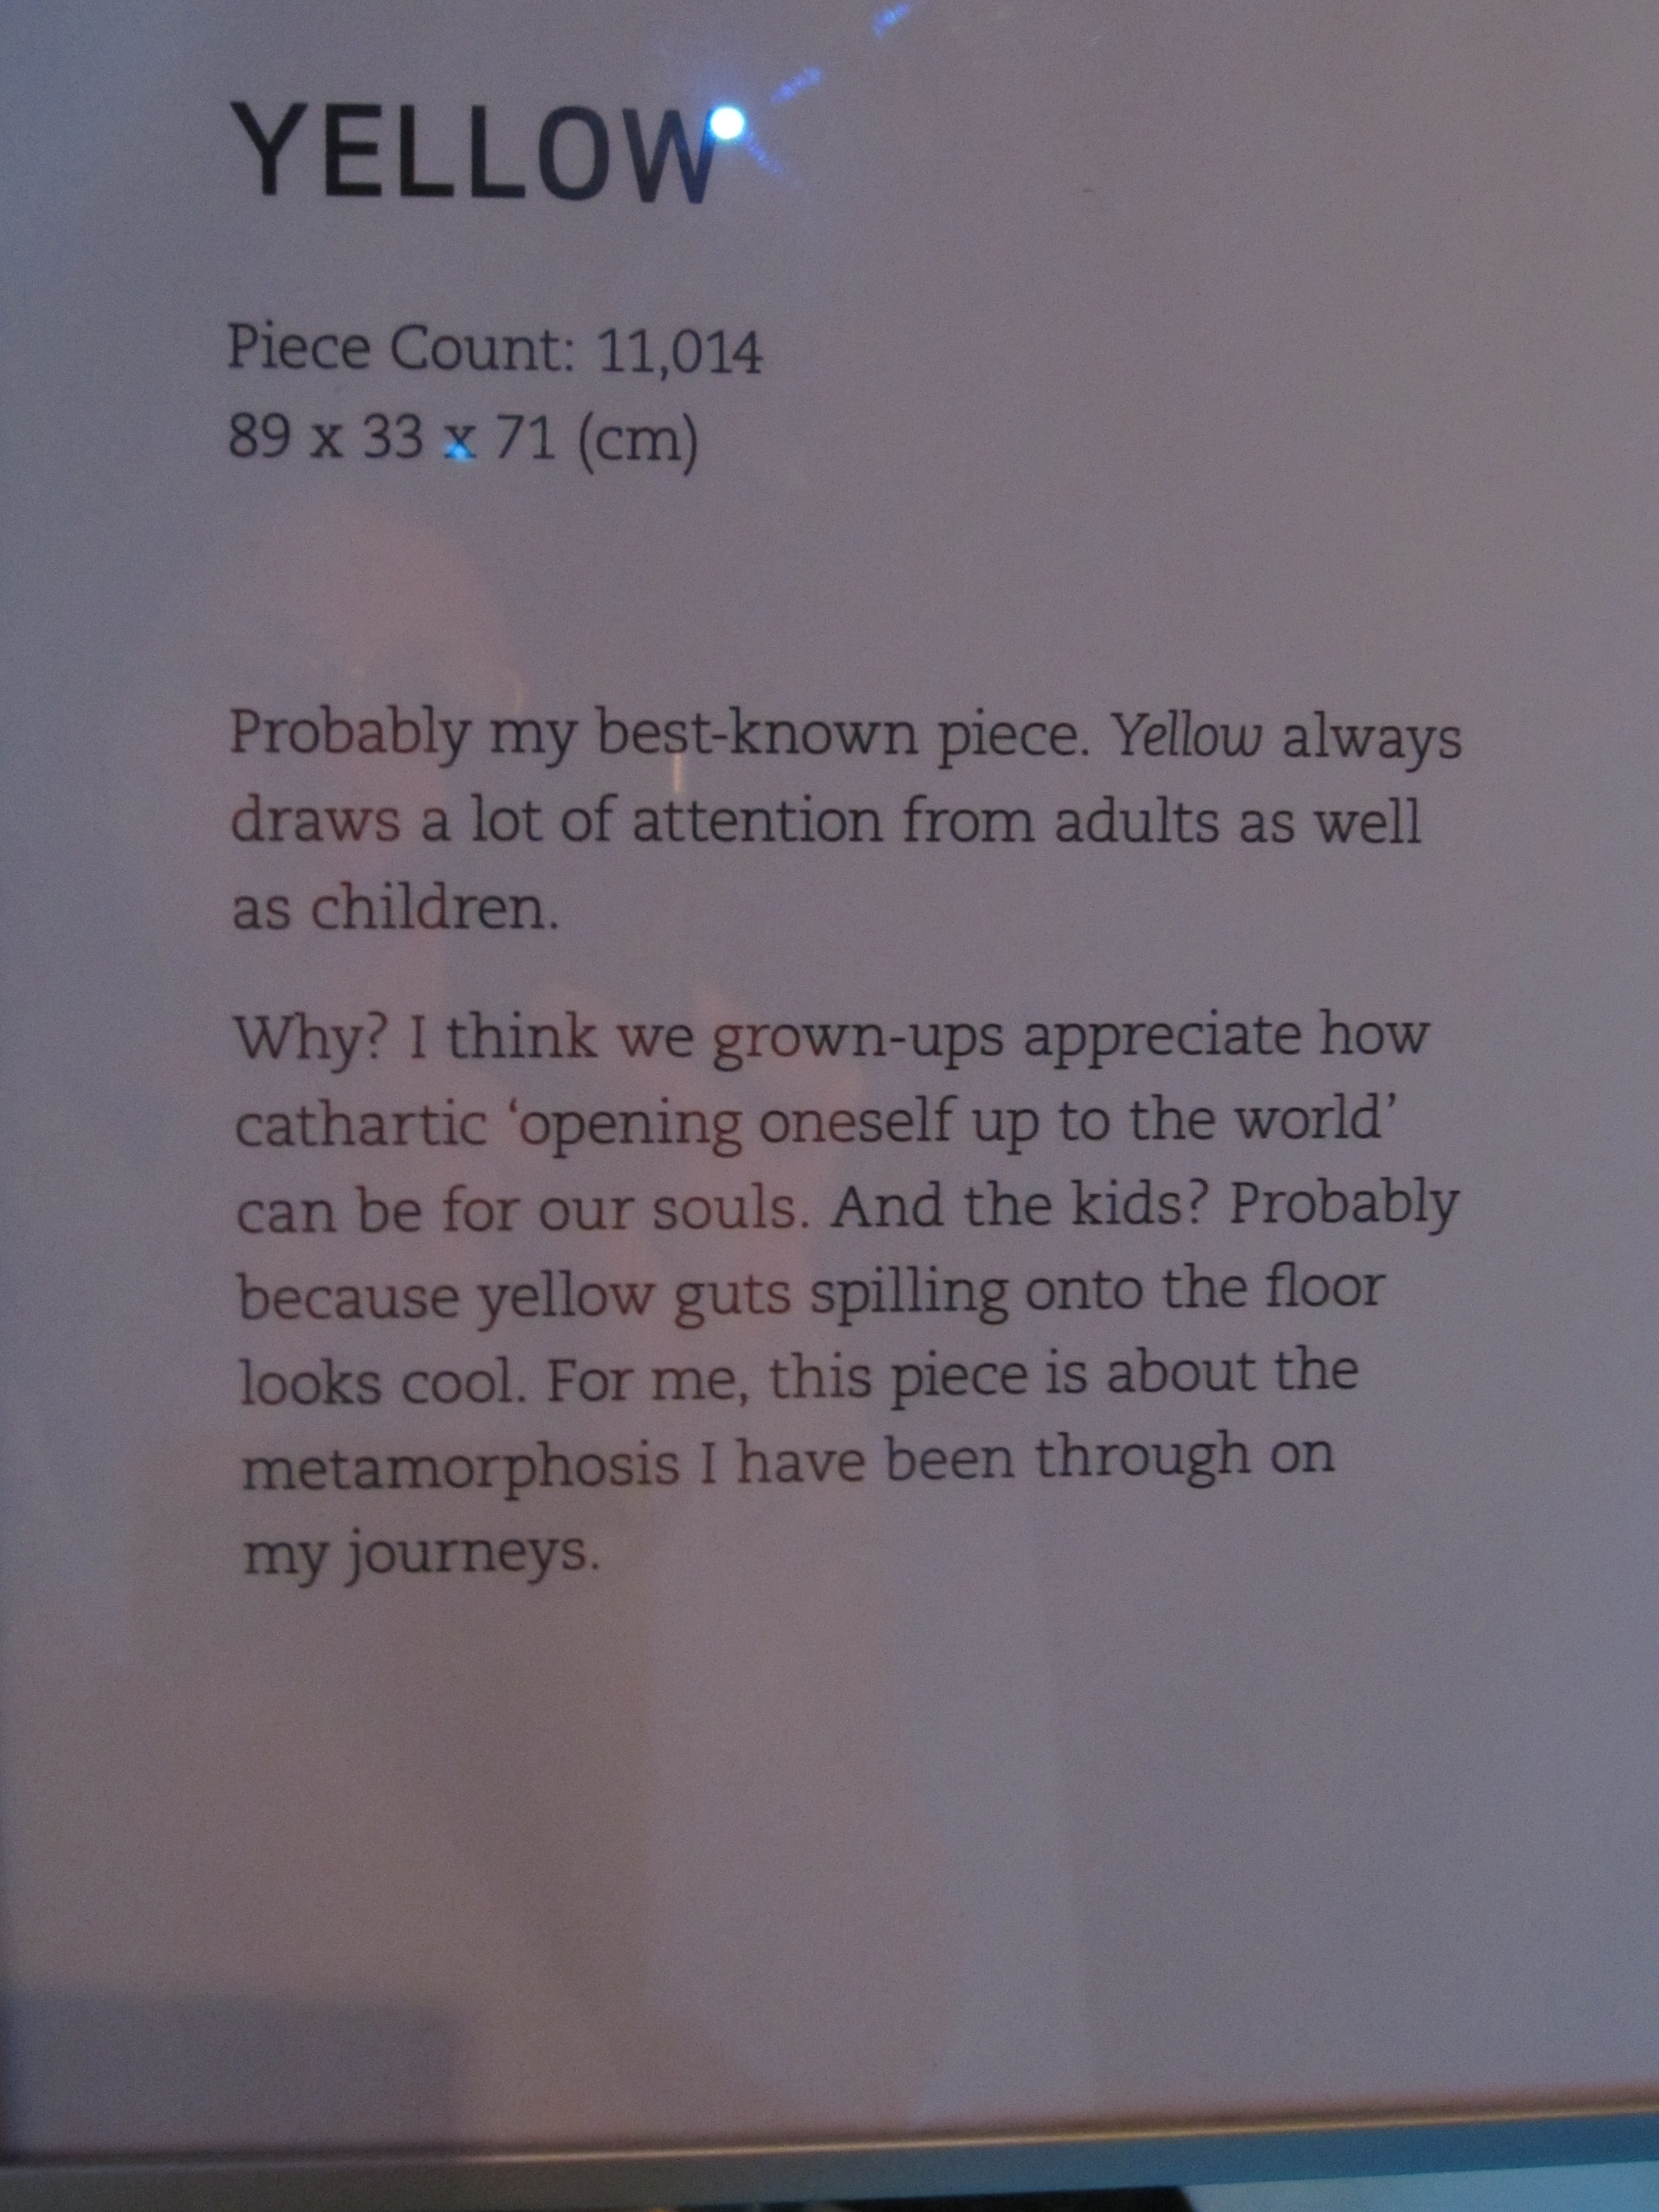 YELLOW
Piece Count: 11,014
89 x 33 x 71 (cm)
Probably my best-known piece. Yellow always
draws a lot of attention from adults as well
as children.
Why? I think we grown-ups appreciate how
cathartic ‘opening oneself up to the world’
can be for our souls. And the kids? Probably
because yellow guts spilling onto the floor
looks cool. For me, this piece is about the
metamorphosis I have been through on
my journeys.